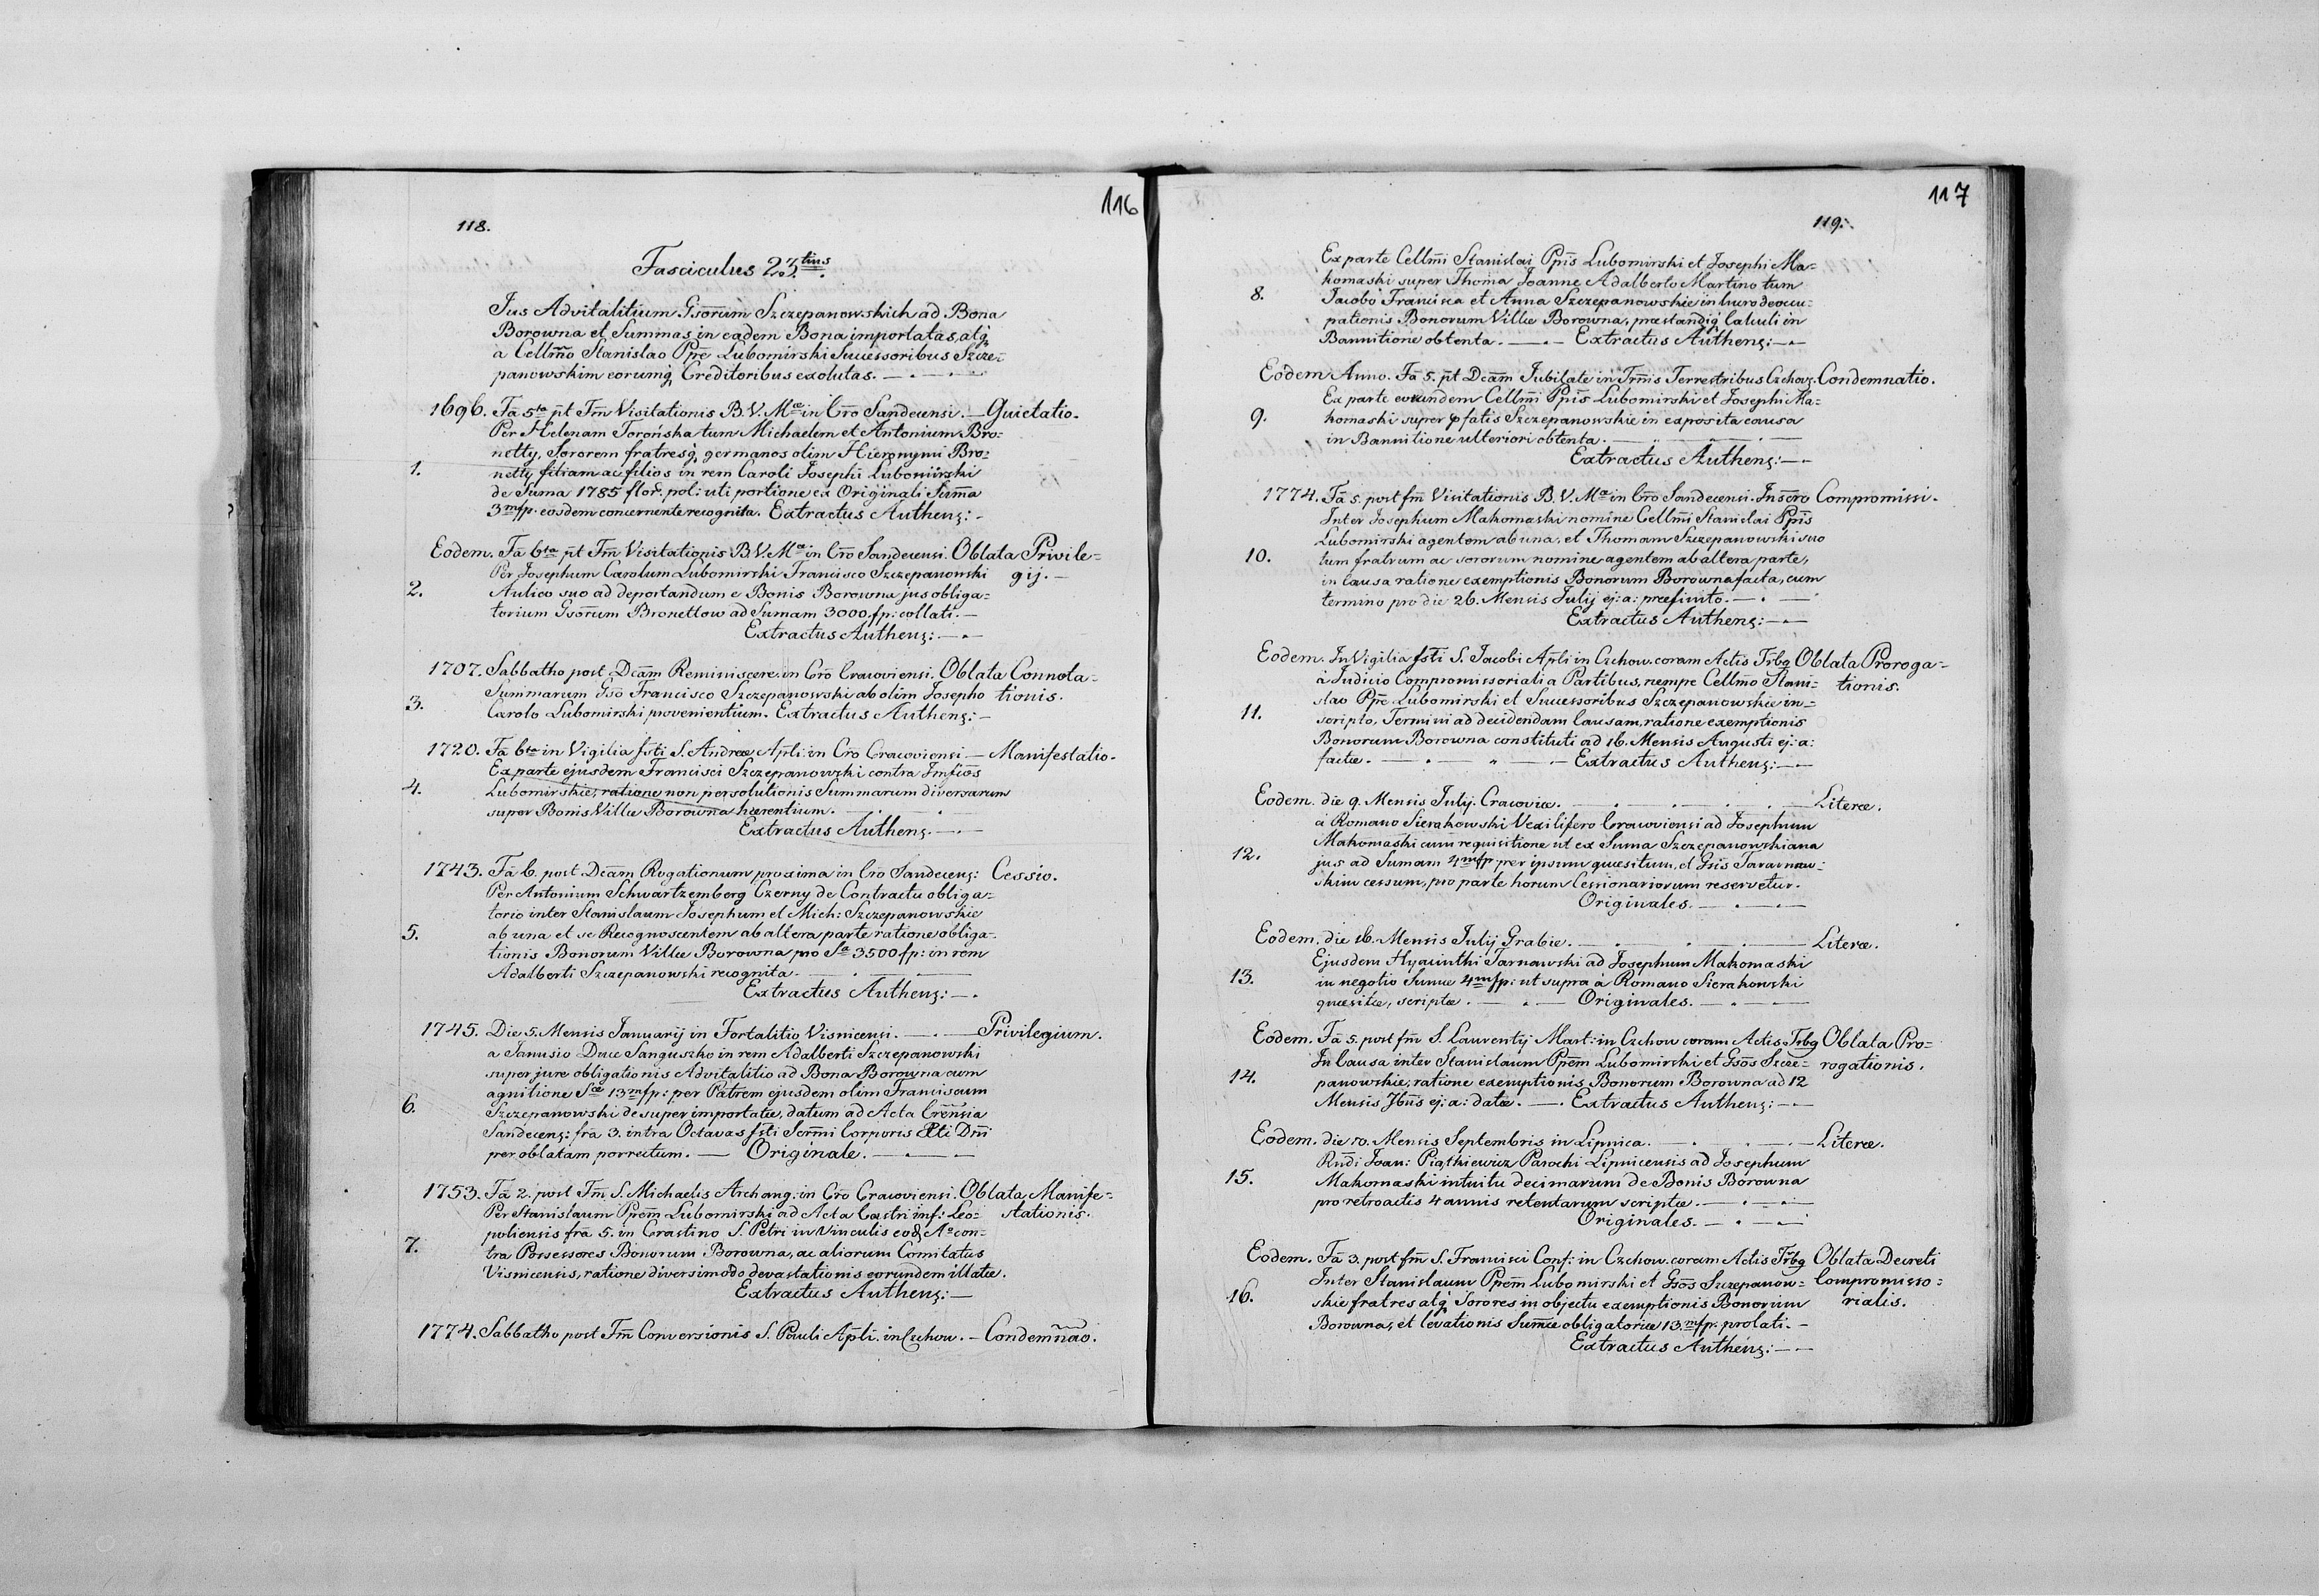 116
118.
Fasciculus 23tius.
Jus Advitalitium Gsorum Szczepanowskich ad Bona
Borowna et Summas in eadem Bona importatas, atq
a Cellmo Stanislao Ppe Lubomirski Successoribus Szcze-
panowskim eorumq Creditoribus exolutas.
1696. Fa 5ta pt Fm Visitationis B.V.Mae in Cro Sandecensi. — Quietatio.
Per Helenam Torońska tum Michaelem et Antonium Bro-
netty, Sororem fratresq germanos olim Hieronymi Bro-
1. netty filiam ac filios in rem Caroli Josephi Lubomirski
de Suma 1785 flor. pol: uti portione ex Originali Suma
3mfp. eosdem concernente recognita. Extractus Authens: -
Eodem. Fa 6ta pt Fm Visitationis B.V.Mae in Cro Sandecensi. Oblata Privile-
Per Josephum Carolum Lubomirski Francisco Szczepanowski gij. —
2. Aulico suo ad deportandum e Bonis Borowna jus obliga-
torium Gsorum Bronettow ad Sumam 3000.fp: collati. —
Extractus Authens: —
1707. Sabbatho post Dcam Reminiscere in Cro Cracoviensi. Oblata Connota-
Summarum Gso Francisco Szczepanowski ab olim Josepho tionis.
3. Carolo Lubomirski provenientium. Extractus Authens: —
1720. Fa 6ta in Vigilia fsti S. Andreae Apli: in Cro Cracoviensi — Manifestatio.
Ex parte ejusdem Francisci Szczepanowski contra Imfcos
4. Lubomirskie, ratione non persolutionis Summarum diversarum
super Bonis Villae Borowna haerentium.
Extractus Authens. —
1743. Fa 6. post Dcam Rogationum proxima in Cro Sandecens: Cessio.
Per Antonium Schwartzemberg Czerny de Contractu obliga-
torio inter Stanislaum Josephum et Mich: Szczepanowskie
5. ab una et se Recognoscentem ab altera parte ratione obliga-
tionis Bonorum Villae Borowna pro Sa 3500 fp: in rem
Adalberti Szczepanowski recognita.
Extractus Authens: —
1745. Die 5. Mensis Januarij in Fortalitio Visnicensi. — Privilegium.
a Janusio Duce Sanguszko in rem Adalberti Szczepanowski
super jure obligationis Advitalitio ad Bona Borowna cum
agnitione Sae 13mfp: per Patrem ejusdem olim Franciscum
6. Szczepanowski desuper importatae, datum ad Acta Crensia
Sandecens: fra 3. intra Octavas fsti Scrmi Corporis Xti Dni
per oblatam porrectum. — Originale.
1753. Fa 2. post Fm S. Michaelis Archang: in Cro Cracoviensi. Oblata Manife-
Per Stanislaum Ppem Lubomirski ad Acta Castri inf: Leo- stationis.
poliensis fra 5. in Crastino S. Petri in Vinculis eod Ao con-
7. tra Possessores Bonorum Borowna, ac aliorum Comitatus
Visnicensis, ratione diversimodo devastationis eorundem illatae.
Extractus Authens: —
1774. Sabbatho post Fm Conversionis S. Pauli Apli. in Czchow. — Condemnao.
117
119.
Ex parte Cellmi Stanislai Ppis Lubomirski et Josephi Ma-
komaski super Thoma Joanne Adalberto Martino tum
8. Jacobo Francisca et Anna Szczepanowskie in lucro deoccu-
pationis Bonorum Villae Borowna, praestandiq Calculi in
Bannitione obtenta. — Extractus Authens: —
Eodem Anno. Fa 5. pt Dcam Jubilate in Trmis Terrestribus Czchov. Condemnatio.
Ex parte eorundem Cellmi Ppis Lubomirski et Josephi Ma-
9. komaski super pfatis Szczepanowskie in exposita causa
in Bannitione ulteriori obtenta.
Extractus Authens: —
1774. Fa 5. post fm Visitationis B.V.Mae in Cro Sandecensi. Inscro Compromissi.
Inter Josephum Makomaski nomine Cellmi Stanislai Ppis
Lubomirski agentem ab una, et Thomam Szczepanowski suo
10. tum fratrum ac sororum nomine agentem ab altera parte,
in causa ratione exemptionis Bonorum Borowna facta, cum
termino pro die 26. Mensis Julij ej: a: praefinito. —
Extractus Authens: —
Eodem. In Vigilia fsti S. Jacobi Apli in Czchow. coram Actis Trbg Oblata Proroga-
à Judicio Compromissoriali a Partibus, nempe Cellmo Stani- tionis.
slao Ppe Lubomirski et Successoribus Szczepanowskie in-
11. scripto, Termini ad decidendam Causam, ratione exemptionis
Bonorum Borowna constituti ad 16. Mensis Augusti ej: a:
factae. — Extractus Authens: —
Eodem. die 9. Mensis Julij. Cracoviae. — Literae.
à Romano Sierakowski Vexilifero Cracoviensi ad Josephum
Makomaski cum requisitione ut ex Suma Szczepanowskiana
12. jus ad Sumam 4mfp per ipsum quaesitum, et Gsis Tarnow-
skim cessum, pro parte horum Cessionariorum reservetur.
Originales. —
Eodem. die 16. Mensis Julij Grabie. — Literae.
Ejusdem Hyacinthi Tarnawski ad Josephum Makomaski
13. in negotio Sumae 4mfp: ut supra à Romano Sierakowski
quaesitae, scriptae. — Originales. —
Eodem. Fa 5. post fm S. Laurentij Mart: in Czchow coram Actis Trbg Oblata Pro-
In Causa inter Stanislaum Ppem Lubomirski et Gsos Szcze- rogationis.
14. panowskie, ratione exemptionis Bonorum Borowna ad 12
Mensis 7bris ej: a: datae. — Extractus Authens: —
Eodem. die 10. Mensis Septembris in Lipnica. — Literae.
Rndi Joan: Piątkiewicz Parochi Lipnicensis ad Josephum
15. Makomaski intuitu decimarum de Bonis Borowna
pro retroactis 4 annis retentarum scriptae. —
Originales. —
Eodem. Fa 3. post fm S. Francisci Conf: in Czchow. coram Actis Trbg Oblata Decreti
Inter Stanislaum Ppem Lubomirski et Gsos Szczepanow- Compromisso-
16. skie fratres atq Sorores in objectu exemptionis Bonorum rialis.
Borowna, et levationis Sumae obligatoriae 13.mfp. prolati. —
Extractus Authens: —